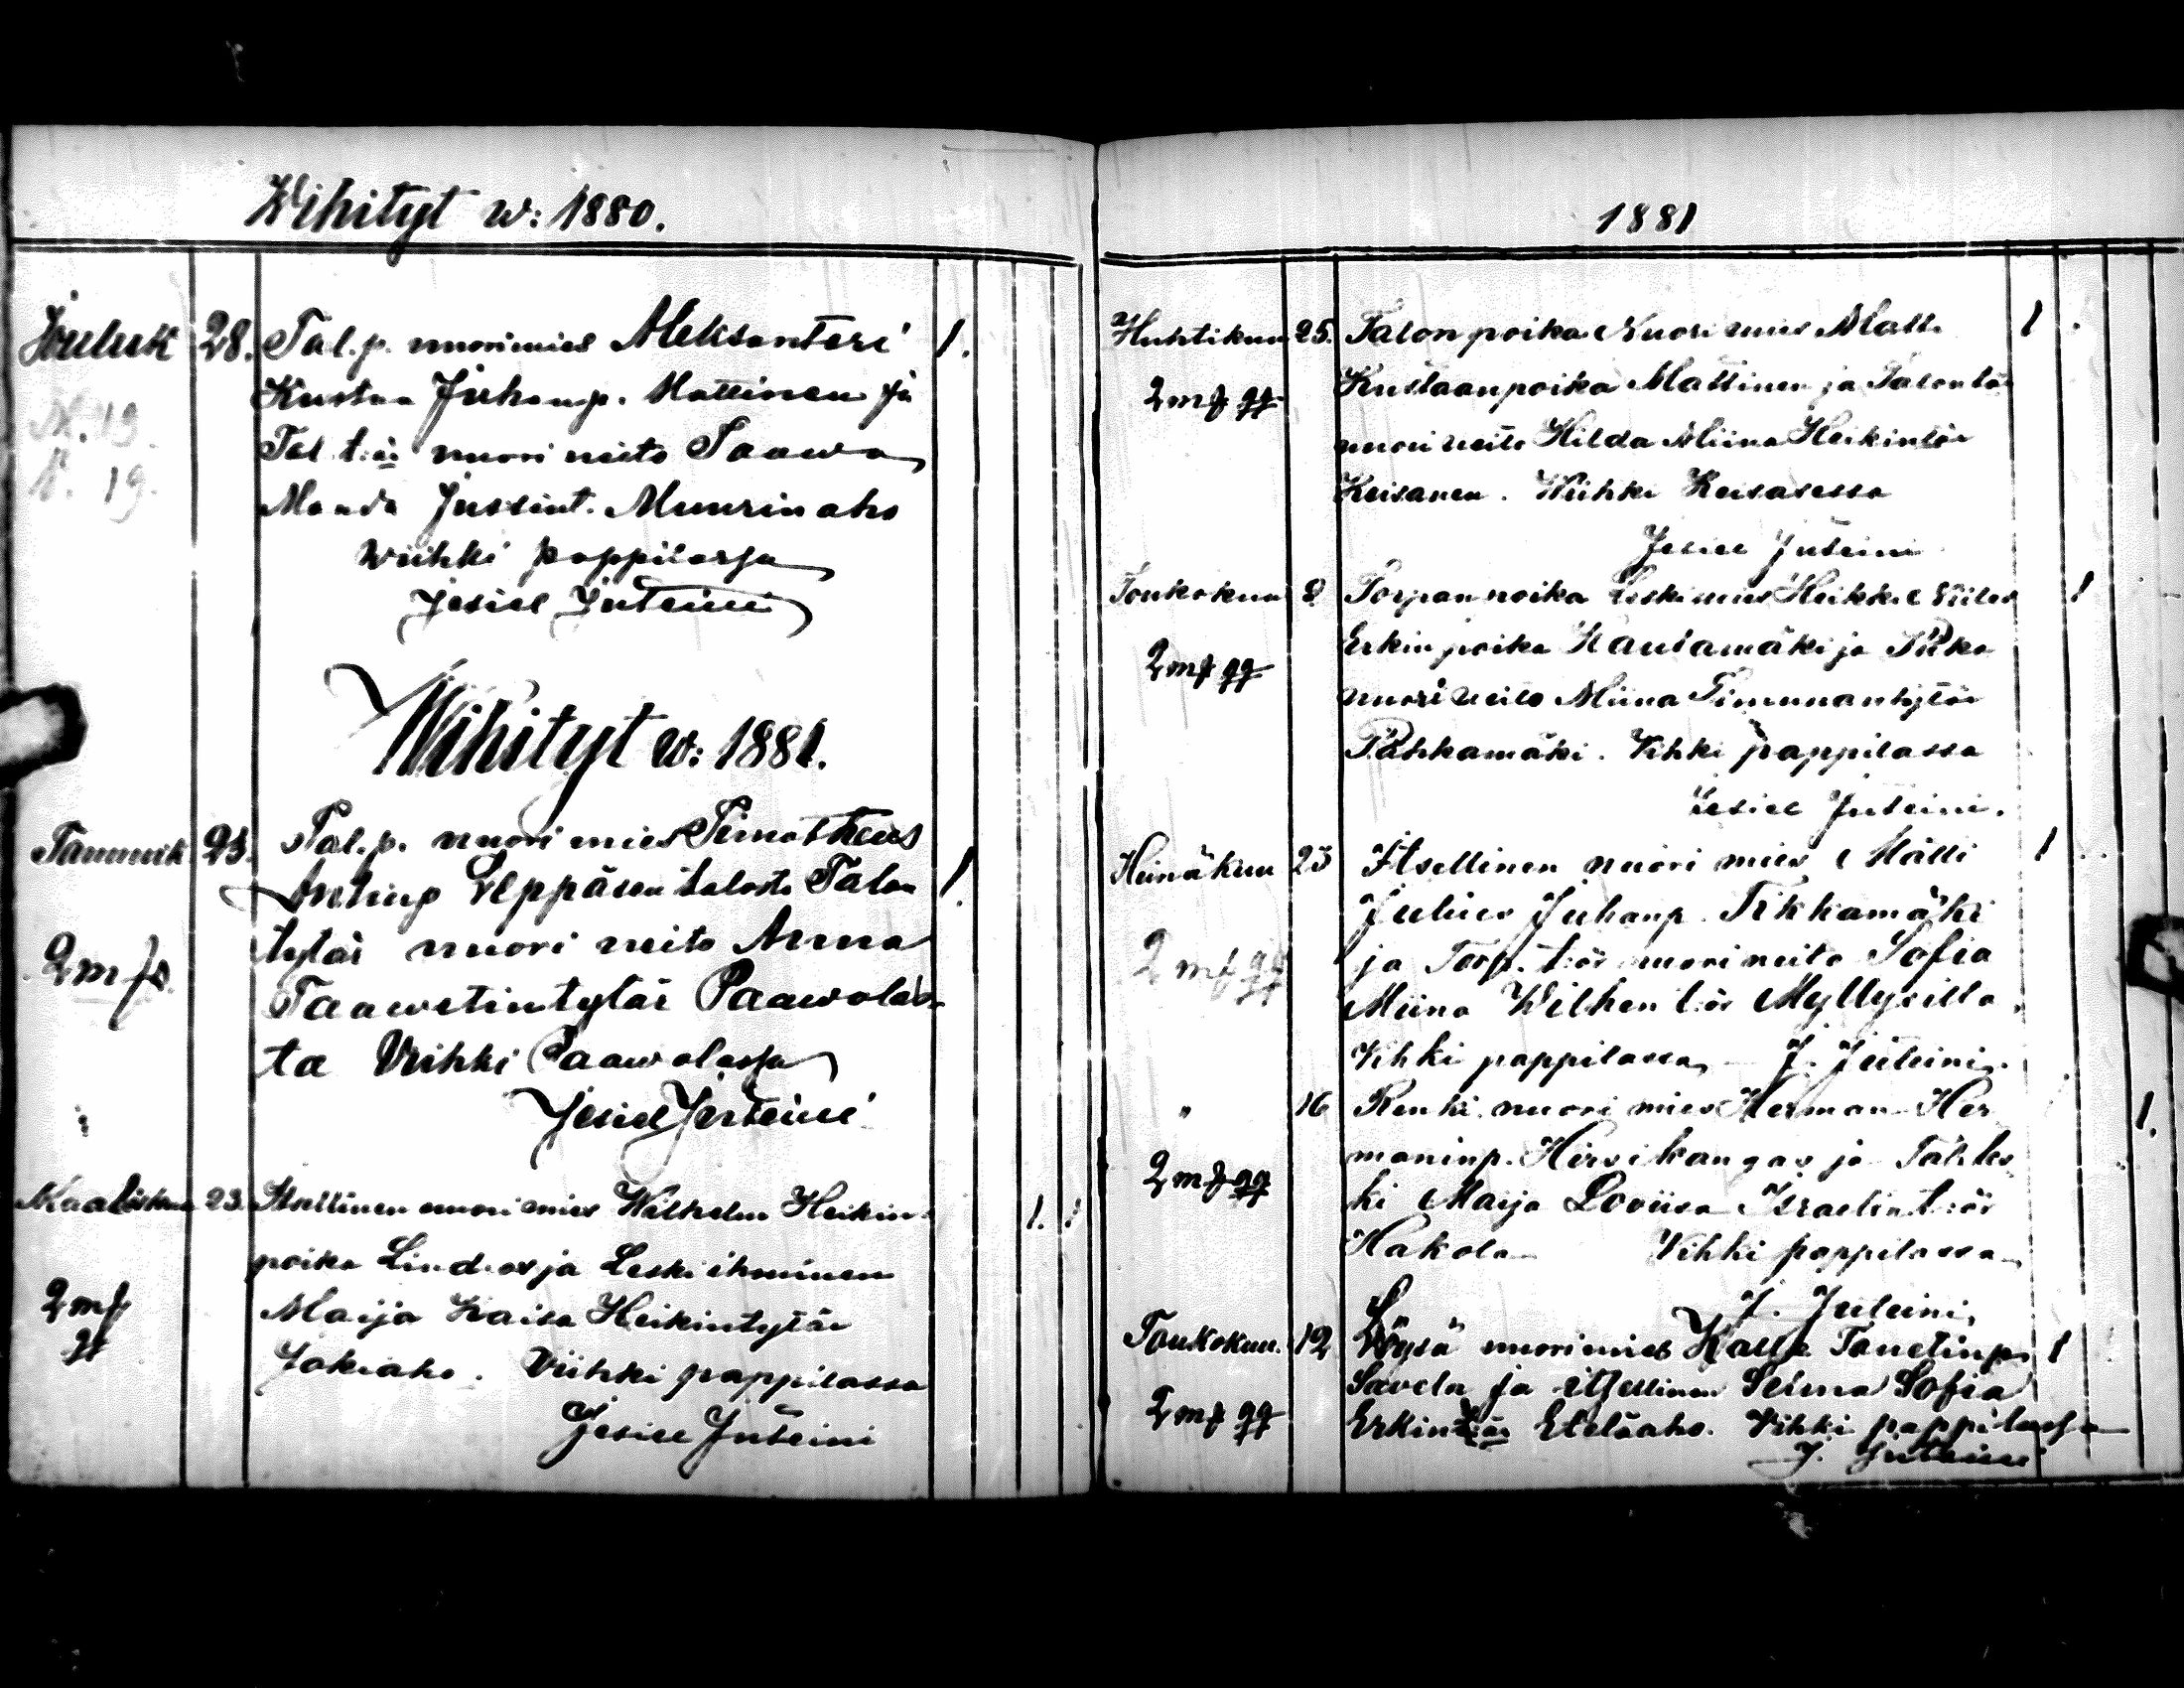 Wihityt w: 1880.
Jouluk 28. Tal. p. nuorimies Aleksanteri 1.
Kustaa Juhanp. Mattinen ja
N. 13.
Tal. t:är nuori neito Taawa
N. 19.
Manda Jussint. Muurinaho
Wiihki pappilassa
Jesiel Juteini
Wihityt w: 1881.
Tammik 23. Tal. p. nuori mies Timotheus
Antinp Seppäsen talosta Talon 1.
tytär nuori neito Anna
2 mf
Taawetintytär Paawolas
ta Wiihki Paawolassa
Jesiel Juteini
Maalisku 23. Itsellinen nuori mies Wilhelm Heikin 1. 1
poika Lindroos ja Leski ihminen
2 mf
Maija Kaisa Heikintytär
gg
Jokiaho. Wiihki pappilassa
Jesiel Juteini
1881
Huhtikuu 25. Talon poika Nuori mies Matti 1.
Kustaanpoika Mattinen ja Talontär
2 mf gg
nuori neito Hilda Miina Heikintär
Keisanen. Wiihki Keisasessa
Jesiel Juteini
Toukokuu 8 Torpan poika Leski mies Heikki 1
Erkin poika Hautamäki ja Piika
2 mf gg
nuori neito Miina Timunantytär
Pahkamäki. Vihki pappilassa
Jesiel Juteini.
Heinäkuu 23 Itsellinen nuori mies Matti 1
Julius Juhanp. Tikkamäki
2 mf gg
ja Torp. t:är nuori neito Sofia
Miina Wilhen t:är Myllysilla
Vihki pappilassa J. Juteini.
" 16 Renki nuori mies Herman Her 1.
maninp. Hirsikangas ja
2 mf gg
ki Maija Loviisa Israelin t:är
Hakola Vihki pappilassa
J. Juteini.
Toukokuu. 12 Löysä nuori mies Kalle Tanelinp. 1
Savela ja itsellinen Selma Sofia
2 mf gg
Erkin t:är Eteläaho. Vihki pappilassa
J. Juteini